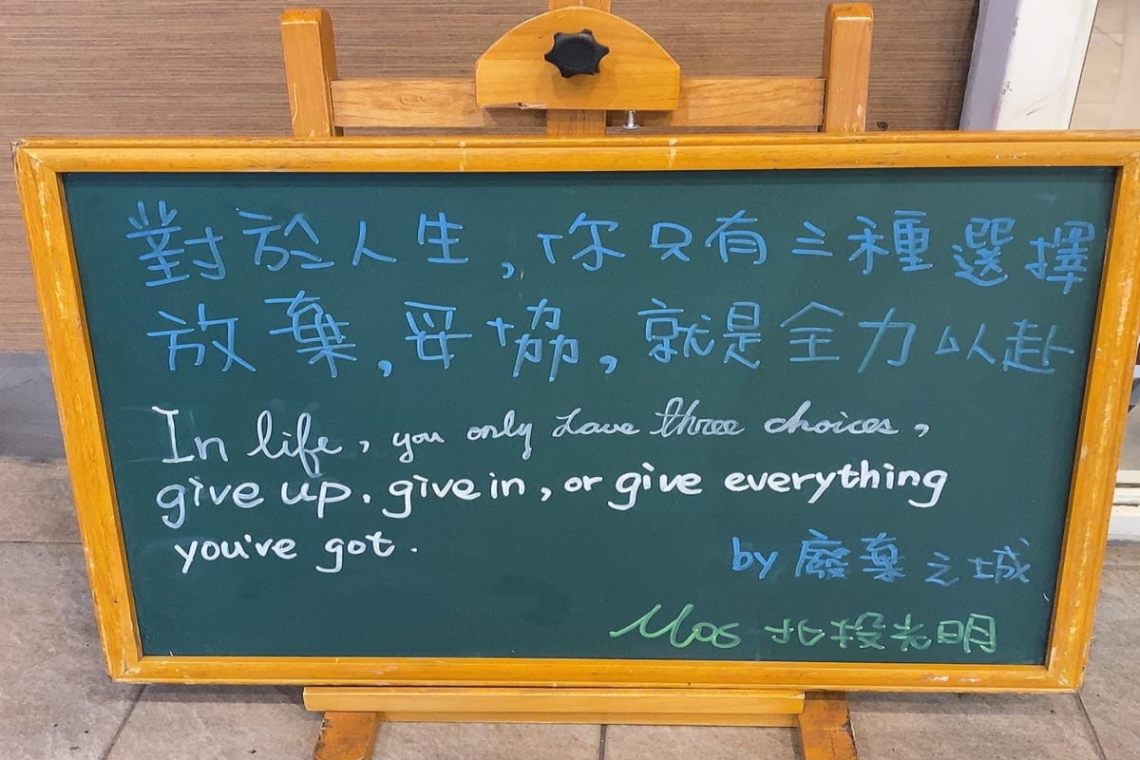 對於人生，你只有三種選擇
放棄，妥協，就是全力以赴
In life, you only have three choices,
give up. give in, or give everything
you've got.
by 廢棄之城
Mos 北投光明